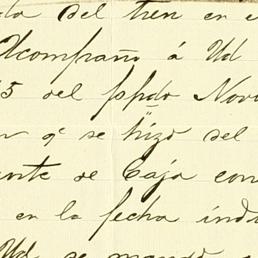 del tren en e
Acompaño á Ud
5 del ppdo Novi
n qe se hizo del
ente de Caja con
en la fecha indi
Ud se mandó